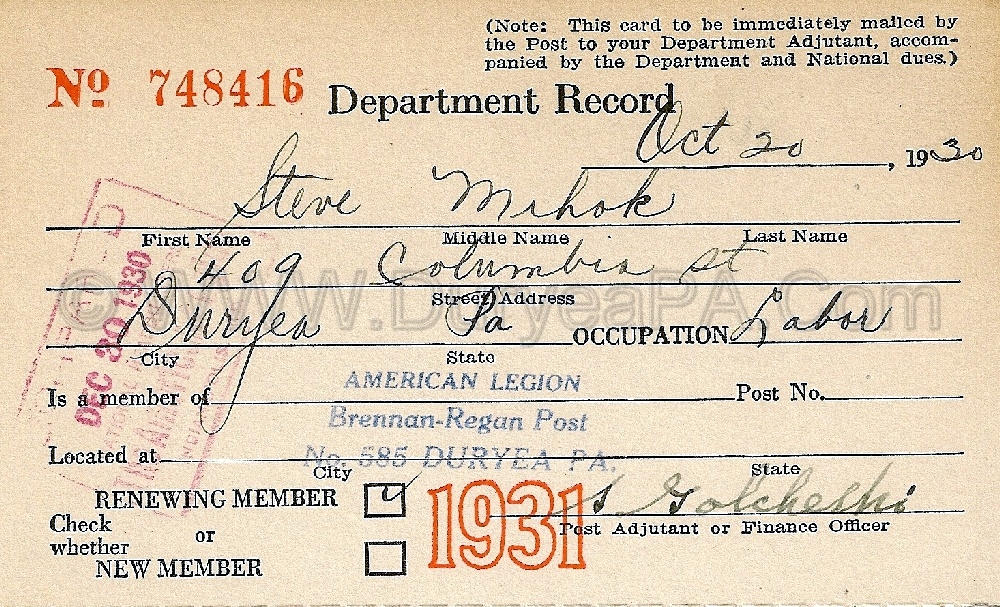 (Note: This card to be immediately mailed by
the Post to your Department Adjutant, accom-
panied by the Department and National dues.)
No 748416
Department Record
Oct 20, 1930
Steve Mihok
First Name Middle Name Last Name
409 Columbia St
Street Address
© WWW.DuryeaPA.Com
Duryea Pa OCCUPATION Labor
City State
DEC 30 1930
AMERICAN LEGION
Is a member of Post No.
Brennan-Regan Post
Located at No. 585 DURYEA PA.
City State
RENEWING MEMBER
1931
Check
whether or
Post Adjutant or Finance Officer
NEW MEMBER